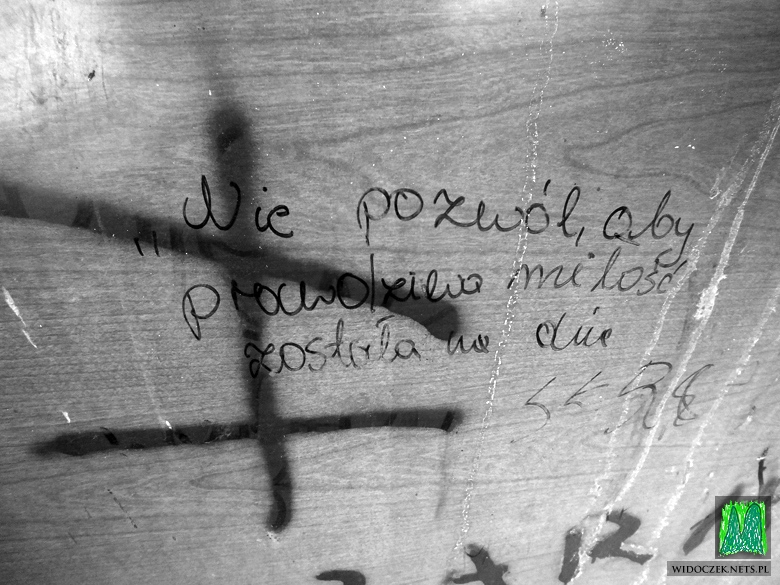 „Nie pozwól, aby
prawdziwa miłość
została na dnie
WIDOCZEK.NETS.PL